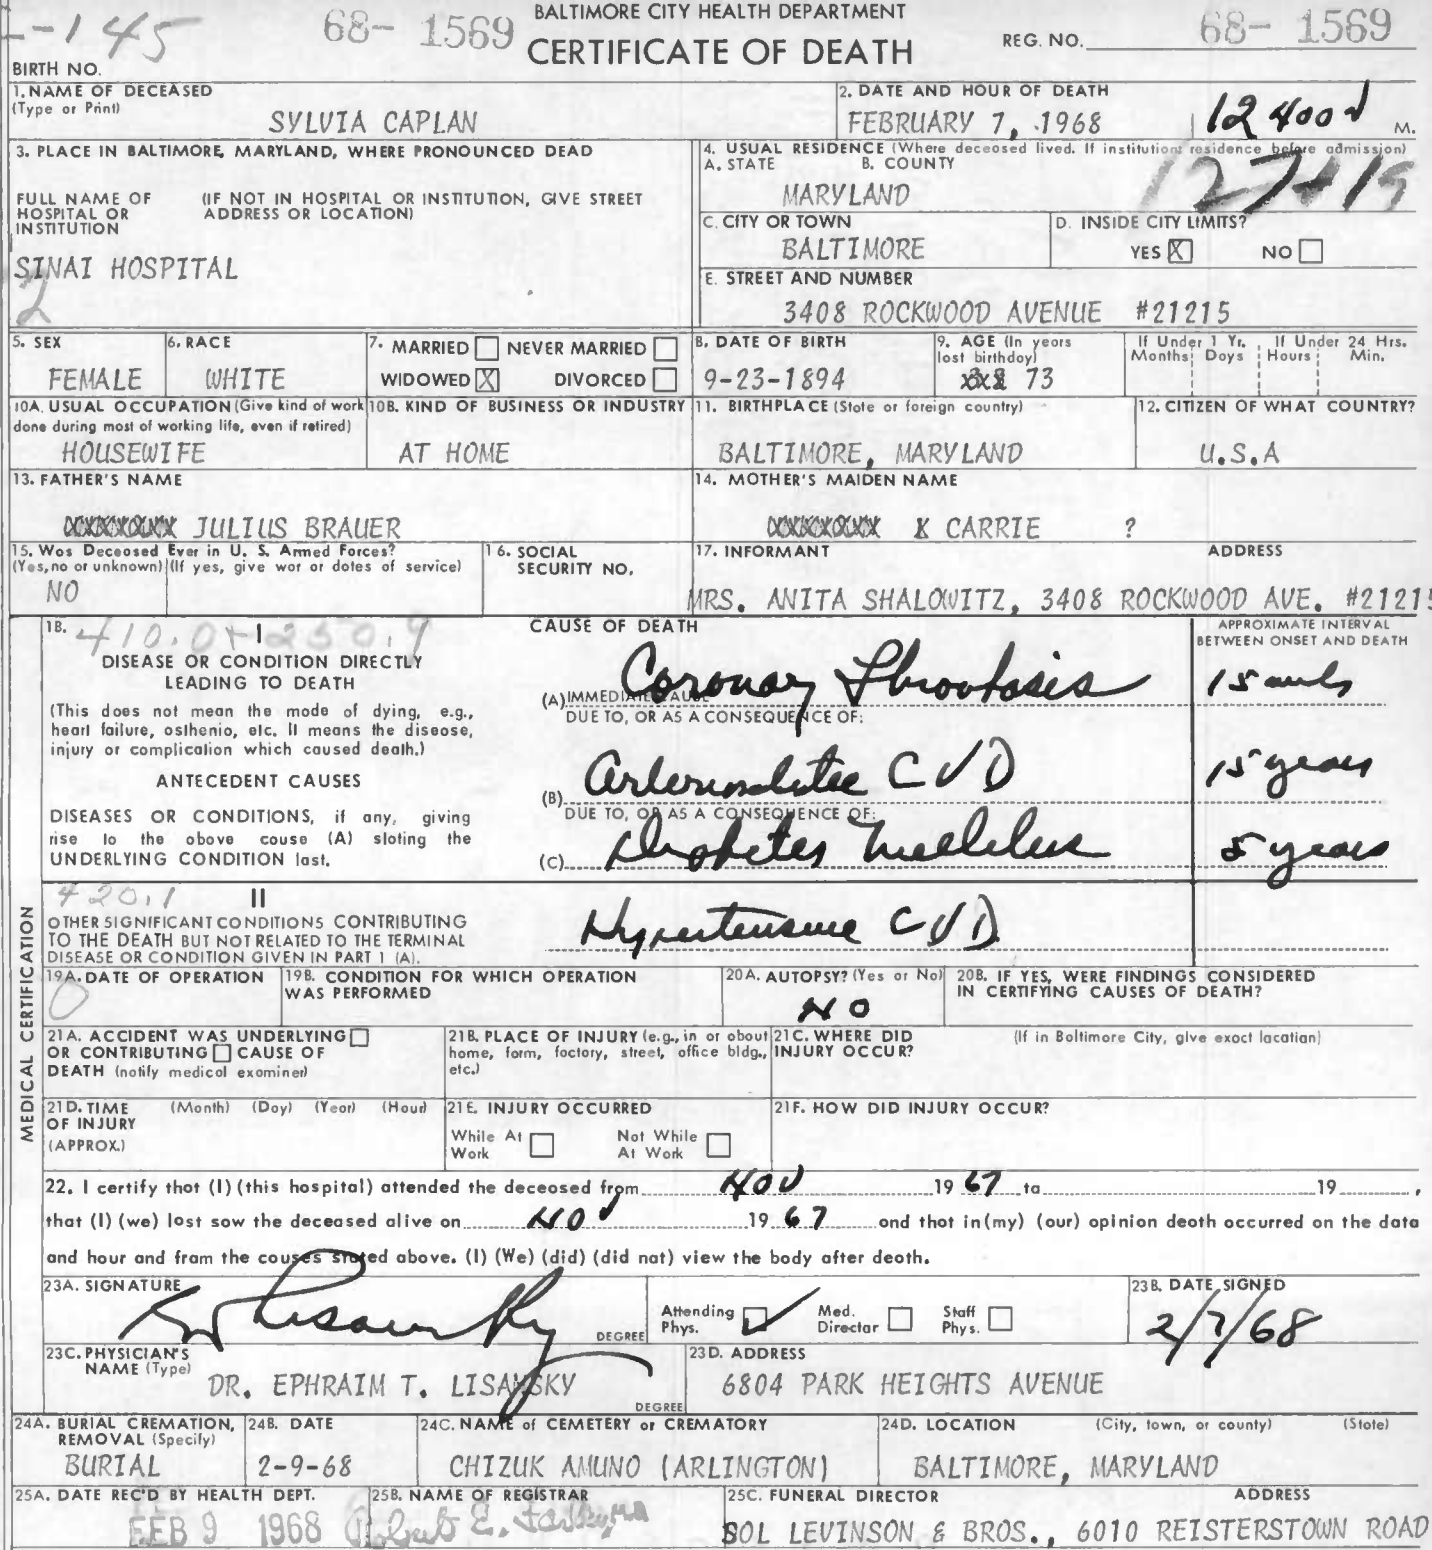 BALTIMORE CITY HEALTH DEPARTMENT
68- 1569
CERTIFICATE OF DEATH
REG. NO. 68- 1569
-145
BIRTH NO.
1. NAME OF DECEASED
(Type or Print)
SYLVIA CAPLAN
2. DATE AND HOUR OF DEATH
FEBRUARY 7, 1968 12 40 M.
3. PLACE IN BALTIMORE, MARYLAND, WHERE PRONOUNCED DEAD
FULL NAME OF HOSPITAL OR INSTITUTION
(IF NOT IN HOSPITAL OR INSTITUTION, GIVE STREET ADDRESS OR LOCATION)
SINAI HOSPITAL
2
4. USUAL RESIDENCE (Where deceased lived. If institution: residence before admission)
A. STATE B. COUNTY
MARYLAND
C. CITY OR TOWN
BALTIMORE
D. INSIDE CITY LIMITS?
YES X NO
E. STREET AND NUMBER
3408 ROCKWOOD AVENUE #21215
5. SEX
FEMALE
6. RACE
WHITE
7. MARRIED NEVER MARRIED
WIDOWED X DIVORCED
8. DATE OF BIRTH
9-23-1894
9. AGE (In years last birthday)
73
If Under 1 Yr. Months Days
If Under 24 Hrs. Hours Min.
10A. USUAL OCCUPATION (Give kind of work done during most of working life, even if retired)
HOUSEWIFE
10B. KIND OF BUSINESS OR INDUSTRY
AT HOME
11. BIRTHPLACE (State or foreign country)
BALTIMORE, MARYLAND
12. CITIZEN OF WHAT COUNTRY?
U.S.A
13. FATHER'S NAME
JULIUS BRAUER
14. MOTHER'S MAIDEN NAME
CARRIE ?
15. Was Deceased Ever in U. S. Armed Forces?
(Yes, no or unknown) (If yes, give war or dates of service)
NO
16. SOCIAL SECURITY NO.
17. INFORMANT ADDRESS
MRS. ANITA SHALOWITZ, 3408 ROCKWOOD AVE. #21215
18. 410.0+250.9
I
DISEASE OR CONDITION DIRECTLY
LEADING TO DEATH
(This does not mean the mode of dying, e.g.,
heart failure, asthenia, etc. It means the disease,
injury or complication which caused death.)
ANTECEDENT CAUSES
DISEASES OR CONDITIONS, if any, giving
rise to the above cause (A) stating the
UNDERLYING CONDITION last.
CAUSE OF DEATH
APPROXIMATE INTERVAL
BETWEEN ONSET AND DEATH
(A) IMMEDIATE CAUSE Coronary Thrombosis 15
DUE TO, OR AS A CONSEQUENCE OF:
(B) CVD 15 years
DUE TO, OR AS A CONSEQUENCE OF:
(C) Diabetes Mellitus 5 years
420.1
II
OTHER SIGNIFICANT CONDITIONS CONTRIBUTING
TO THE DEATH BUT NOT RELATED TO THE TERMINAL
DISEASE OR CONDITION GIVEN IN PART 1 (A).
Hypertensive CVD
MEDICAL CERTIFICATION
19A. DATE OF OPERATION
0
19B. CONDITION FOR WHICH OPERATION WAS PERFORMED
20A. AUTOPSY? (Yes or No)
NO
20B. IF YES, WERE FINDINGS CONSIDERED IN CERTIFYING CAUSES OF DEATH?
21A. ACCIDENT WAS UNDERLYING
OR CONTRIBUTING CAUSE OF
DEATH (notify medical examiner)
21B. PLACE OF INJURY (e.g., in or about home, farm, factory, street, office bldg., etc.)
21C. WHERE DID INJURY OCCUR?
(If in Baltimore City, give exact location)
21D. TIME OF INJURY (APPROX.)
(Month) (Day) (Year) (Hour)
21E. INJURY OCCURRED
While At Work Not While At Work
21F. HOW DID INJURY OCCUR?
22. I certify that (I) (this hospital) attended the deceased from NOV 19 67 to 19 ,
that (I) (we) last saw the deceased alive on NOV 19 67 and that in (my) (our) opinion death occurred on the date
and hour and from the causes stated above. (I) (We) (did) (did not) view the body after death.
23A. SIGNATURE
Lisansky
DEGREE
Attending Phys. Med. Director Staff Phys.
23B. DATE SIGNED
2/7/68
23C. PHYSICIAN'S NAME (Type)
DR. EPHRAIM T. LISANSKY
DEGREE
23D. ADDRESS
6804 PARK HEIGHTS AVENUE
24A. BURIAL CREMATION, REMOVAL (Specify)
BURIAL
24B. DATE
2-9-68
24C. NAME of CEMETERY or CREMATORY
CHIZUK AMUNO (ARLINGTON)
24D. LOCATION (City, town, or county) (State)
BALTIMORE, MARYLAND
25A. DATE REC'D BY HEALTH DEPT.
FEB 9 1968
25B. NAME OF REGISTRAR
Robert E. Farber, MD
25C. FUNERAL DIRECTOR ADDRESS
SOL LEVINSON & BROS., 6010 REISTERSTOWN ROAD